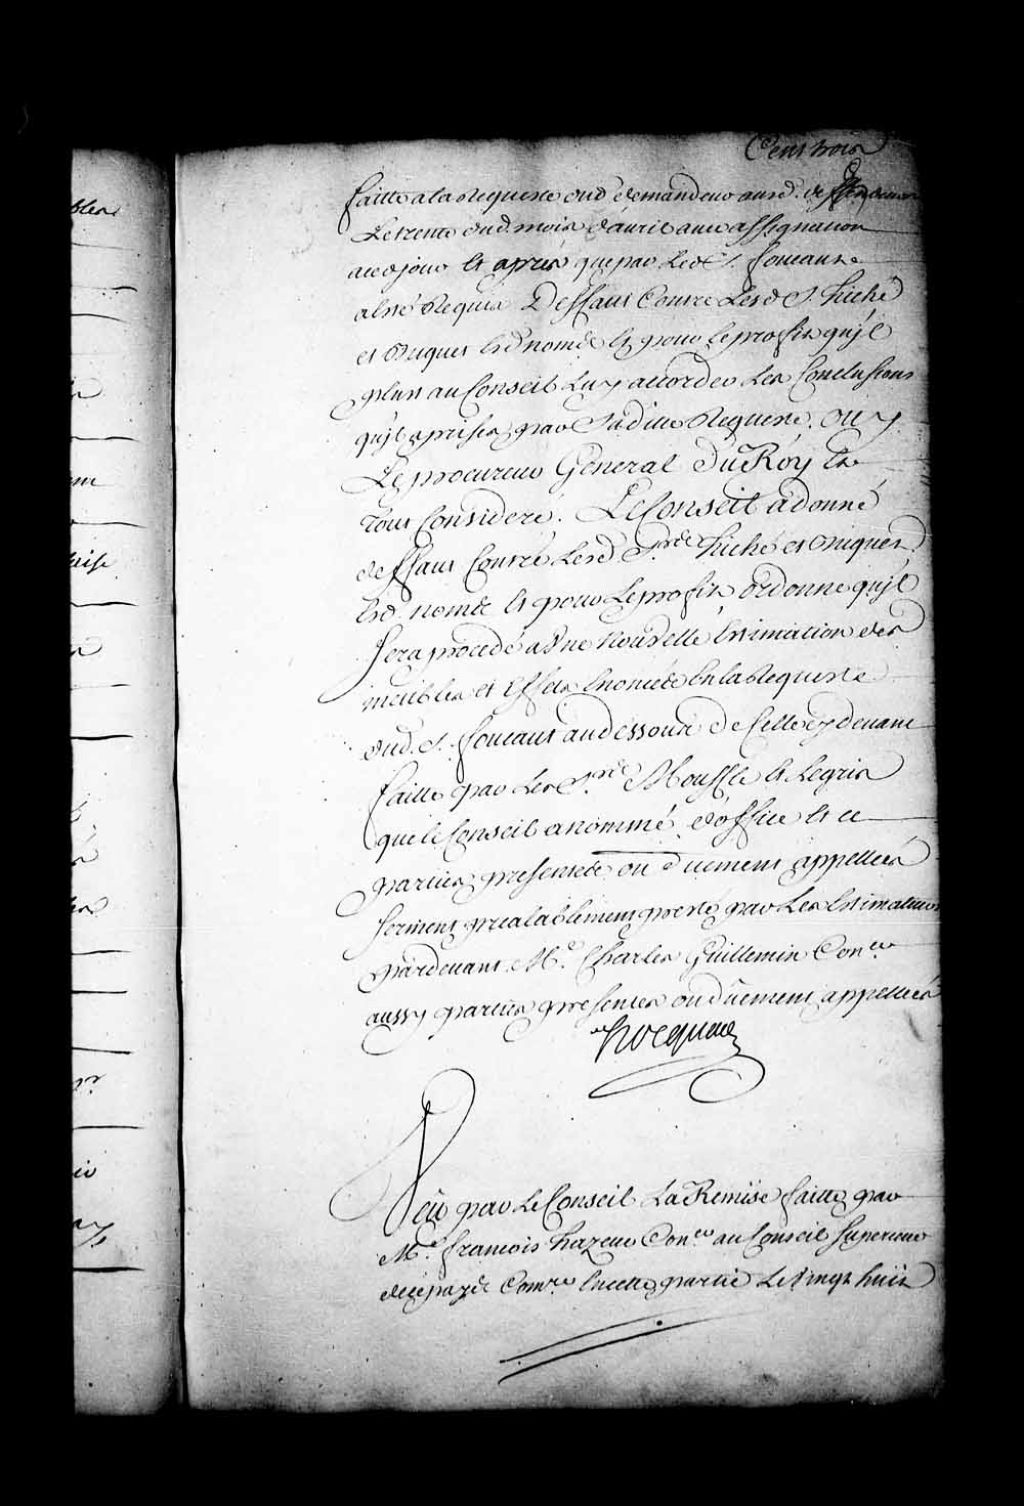 Cent trois
faitte a la Requeste dud. demandeur ausd. deffendeurs
Le trente dud. mois d'avril avec assignation
a ce jour Et après que par Led. S. foucault
a esté Requis Deffaut Contre Lesd. S. hiché
et Esd. noms Et pour le proffit qu'jl
plust au Conseil Luy accorder Les Conclusions
qu'jl a prises par Saditte Requeste. Ouy
Le procureur General Du Roy Et
tout Consideré. Le Conseil a donné
deffaut Contre Lesd. Srs. hiché et
Esd. noms Et pour Le proffit Ordonne qu'jl
Sera procedé a Une Nouvelle Estimation des
meubles et Effets Enoncés En la Requeste
dud. S. foucault au dessous de Celle cy devant
faitte par Les Srs. Mouffle Et Legris
que le Conseil a nommé d'office Et ce
parties presentes ou duement appellées
serment prealablement presté par Les Estimateurs
pardevant Me. Charles Guillemin Coner.
aussy parties presentes ou düement appellées
hocquart
Veu par Le Conseil La Remise faitte par
Me. francois hazeur Coner. au Conseil Superieur
de ce païs Comre. En cette partie Le vingt huit